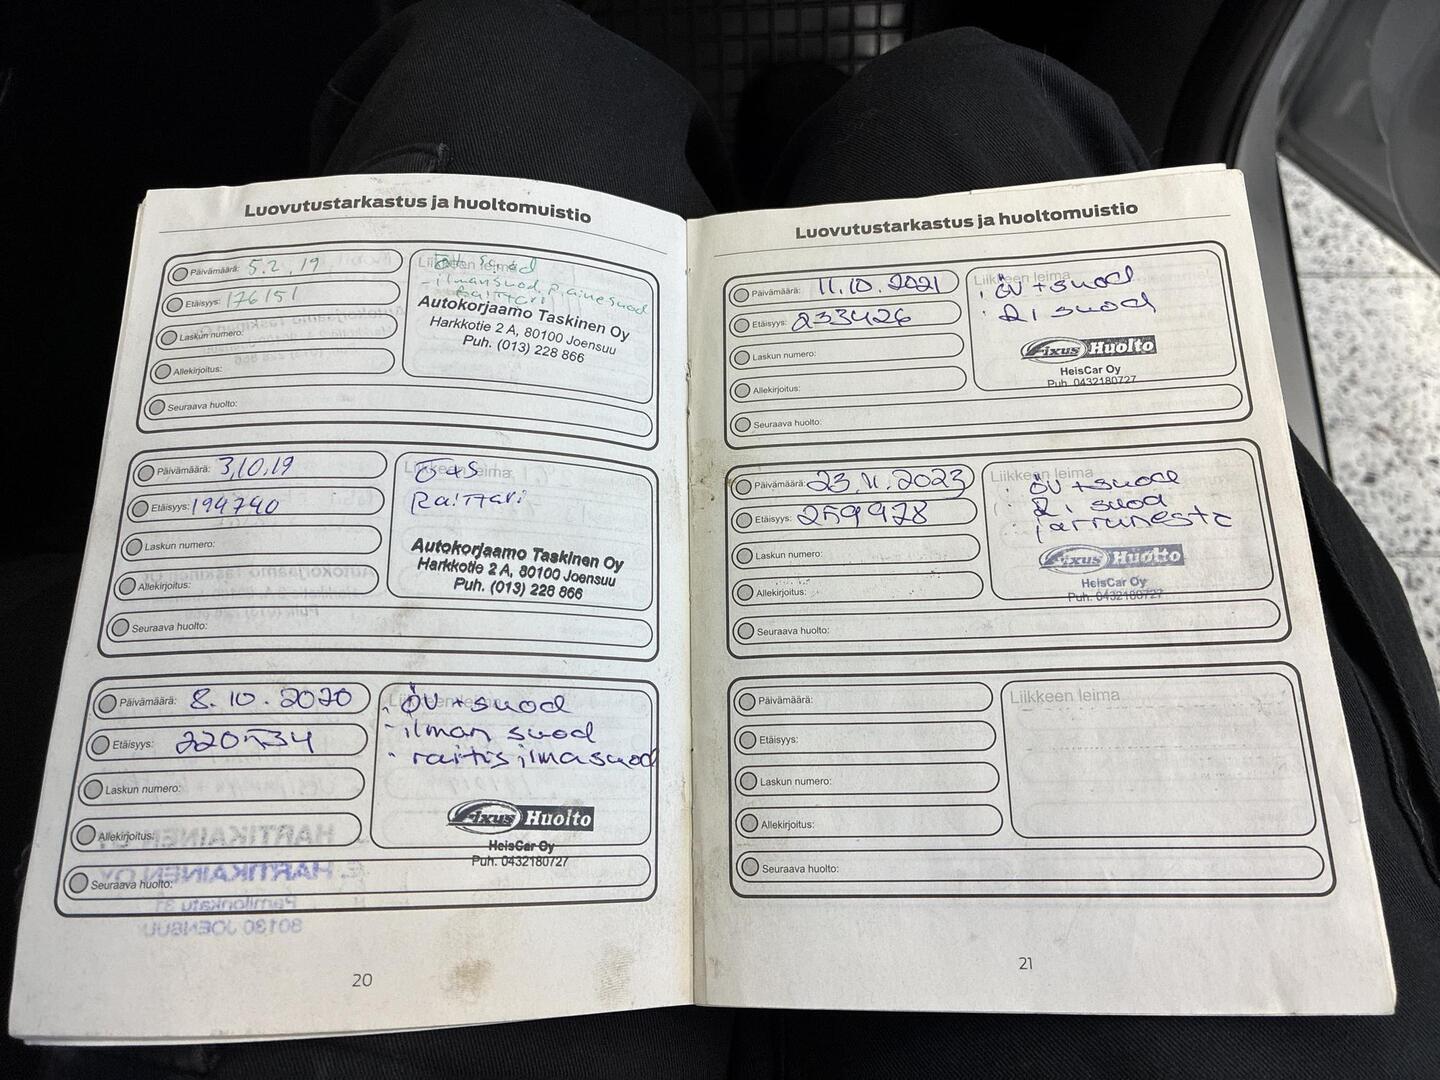 Luovutustarkastus ja huoltomuistio
Päivämäärä: 5.2.19
Etäisyys: 176151
Laskun numero:
Allekirjoitus:
Seuraava huolto:
Liikkeen leima
- ilmansuod,
Raittari
Autokorjaamo Taskinen Oy
Harkkotie 2 A, 80100 Joensuu
Puh. (013) 228 866
Päivämäärä: 3,10,19
Etäisyys: 194740
Laskun numero:
Allekirjoitus:
Seuraava huolto:
Liikkeen leima
Raittari
Autokorjaamo Taskinen Oy
Harkkotie 2 A, 80100 Joensuu
Puh. (013) 228 866
Päivämäärä: 8.10.2020
Etäisyys: 220534
Laskun numero:
Allekirjoitus:
Seuraava huolto:
- ÖV+suod
- ilman suod
- raitisilmasuod
Fixus Huolto
HeisCar Oy
Puh. 0432180727
20
Luovutustarkastus ja huoltomuistio
Päivämäärä: 11.10.2021
Etäisyys: 233426
Laskun numero:
Allekirjoitus:
Seuraava huolto:
Liikkeen leima
. ÖV+suod
. R.i suod
Fixus Huolto
HeisCar Oy
Puh. 0432180727
Päivämäärä: 23.11.2023
Etäisyys: 259978
Laskun numero:
Allekirjoitus:
Seuraava huolto:
Liikkeen leima
. ÖV+suod
. R.i suod
. jarruneste
Fixus Huolto
HeisCar Oy
Puh. 0432180727
Päivämäärä:
Etäisyys:
Laskun numero:
Allekirjoitus:
Seuraava huolto:
Liikkeen leima
21